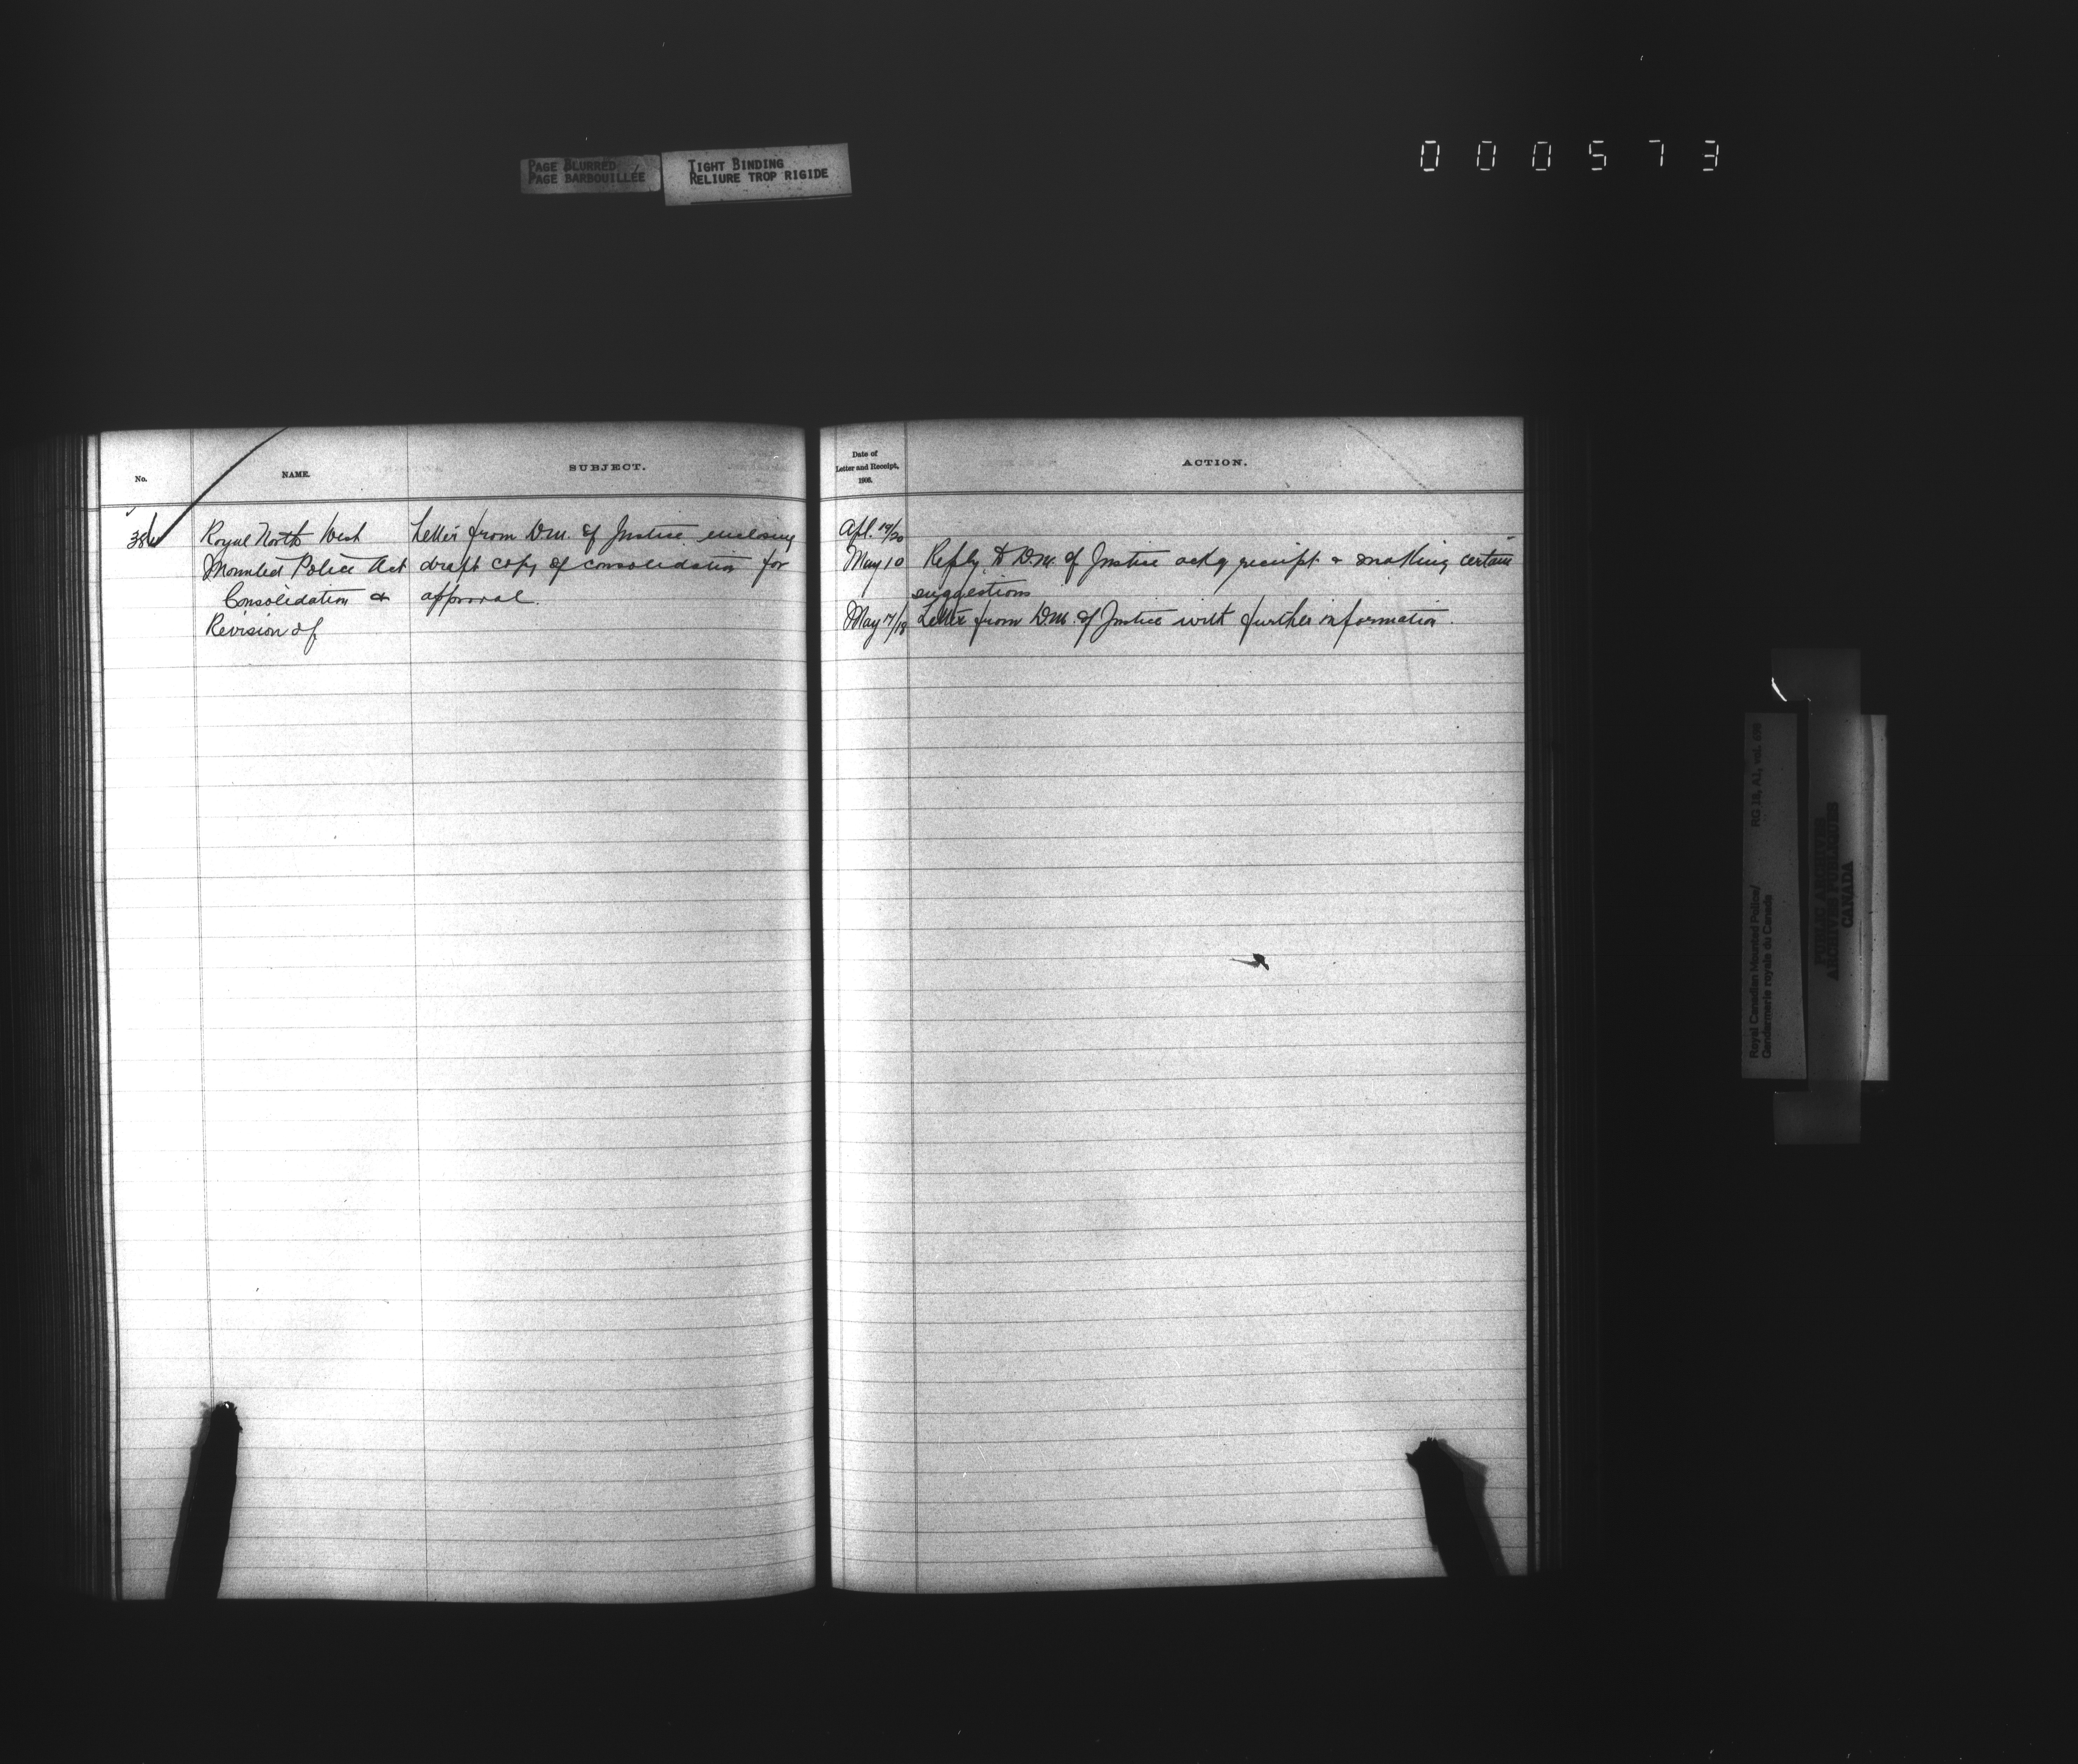 PAGE BLURRED
PAGE BARBOUILLÉE
TIGHT BINDING
RELIURE TROP RIGIDE
000573
No.
NAME.
SUBJECT.
Date of
Letter and Receipt,
1906.
ACTION.
Royal North West
Mounted Police Act
Consolidation &
Revision of
Letter from D.M. of Justice enclosing
draft copy of consolidation for
approval.
Apl. 19/20
May 10 Reply to D.M. of Justice ackg receipt & making certain
suggestions
May 17/18 Letter from D.M. of Justice with further information.
Royal Canadian Mounted Police/
Gendarmerie royale du Canada
RG 18, A1, vol.
PUBLIC ARCHIVES
ARCHIVES PUBLIQUES
CANADA